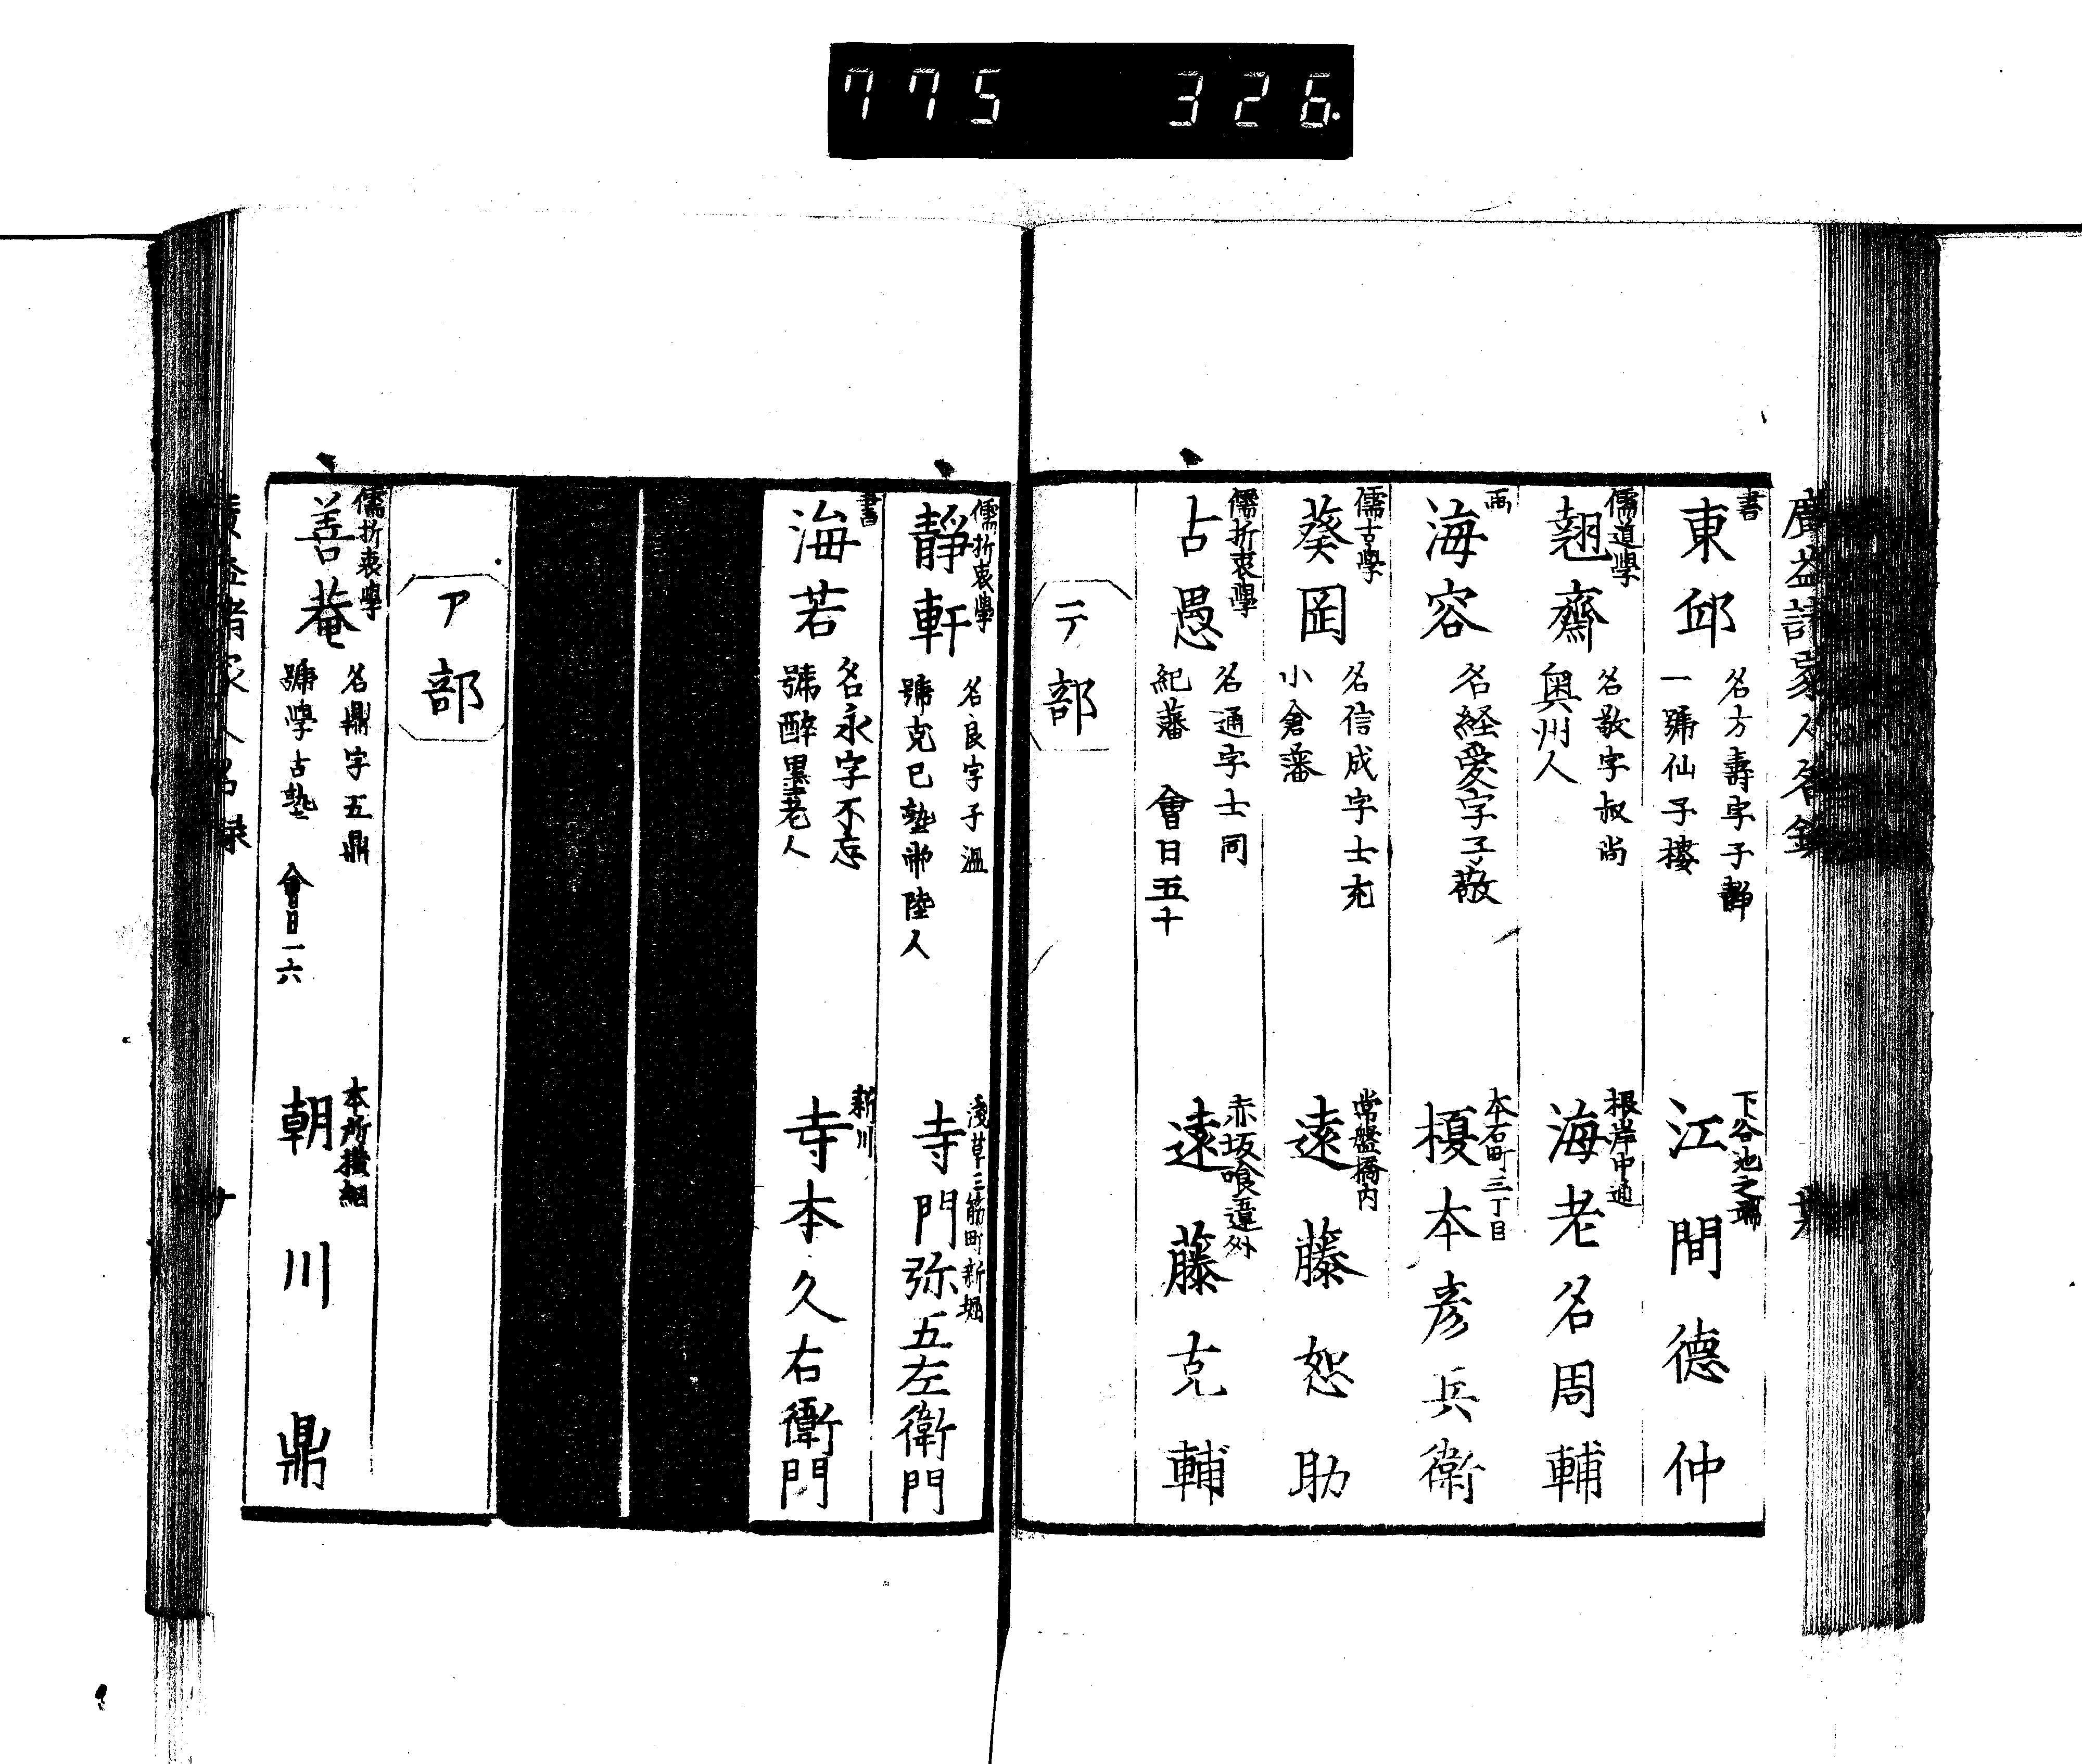 775 326
廣益諸家人名録
書
東邱
名方壽字子靜
一號仙子樓
下谷池之端
江間德仲
儒道學
翹齋
名敬字叔尚
奥州人
根岸中通
海老名周輔
画
海容
名経愛字子敬
本石町三丁目
榎本彦兵衛
儒古學
葵岡
名信成字士充
小倉藩
常盤橋内
遠藤恕助
儒折衷學
占愚
名通字士同
紀藩 會日五十
赤坂喰違外
遠藤克輔
テ部
儒折衷學
靜軒
名良字子温
號克己塾常陸人
淺草三筋町新堀
寺門弥五左衛門
書
海若
名永字不忘
號醉墨老人
新川
寺本久右衛門
ア部
儒折衷學
善菴
名鼎字五鼎
號學古塾 會日一六
本所横網
朝川鼎